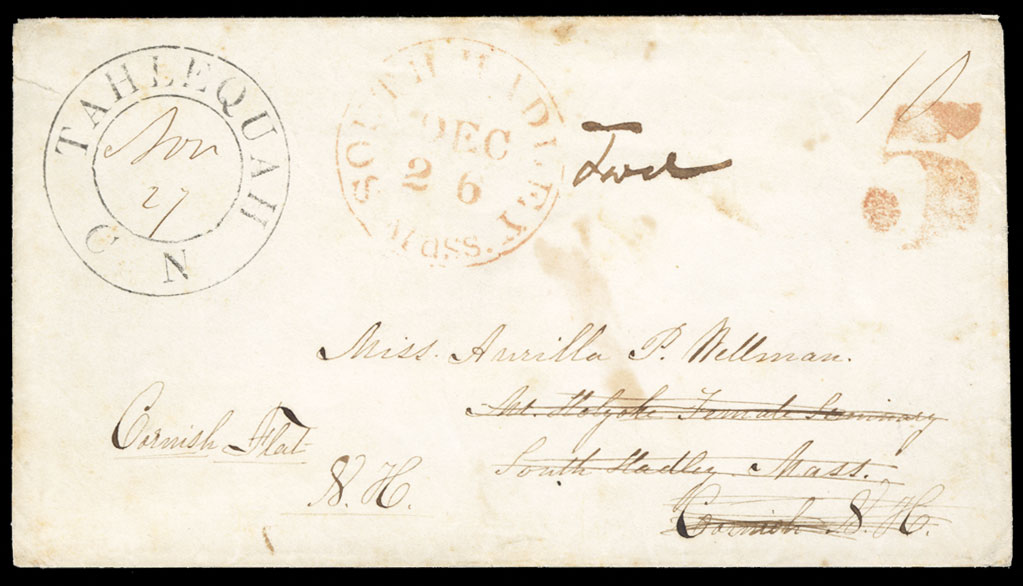 TAHLEQUAH
C N
Nov
27
SOUTH HADLEY
MASS.
DEC
26
Fwd
10
5
Miss. Aurilla P. Wellman.
Mt. Holyoke Female Seminary
South Hadley Mass.
Cornish N. H.
Cornish Flat
N. H.